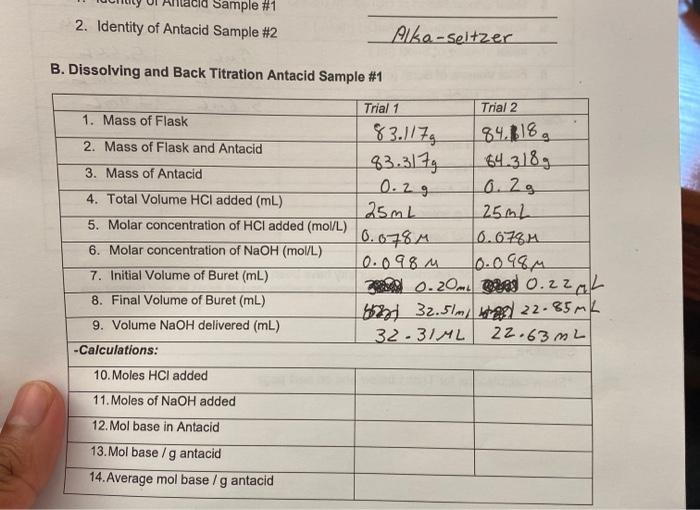 Sample #1
2. Identity of Antacid Sample #2 Alka-seltzer
B. Dissolving and Back Titration Antacid Sample #1
Trial 1 Trial 2
1. Mass of Flask 83.117g 84.118g
2. Mass of Flask and Antacid 83.317g 84.318g
3. Mass of Antacid 0.2g 0.2g
4. Total Volume HCl added (mL) 25mL 25mL
5. Molar concentration of HCl added (mol/L) 0.078M 0.078M
6. Molar concentration of NaOH (mol/L) 0.098M 0.098M
7. Initial Volume of Buret (mL) 0.20mL 0.22mL
8. Final Volume of Buret (mL) 32.51mL 22.85mL
9. Volume NaOH delivered (mL) 32.31mL 22.63mL
-Calculations:
10. Moles HCl added
11. Moles of NaOH added
12. Mol base in Antacid
13. Mol base / g antacid
14. Average mol base / g antacid